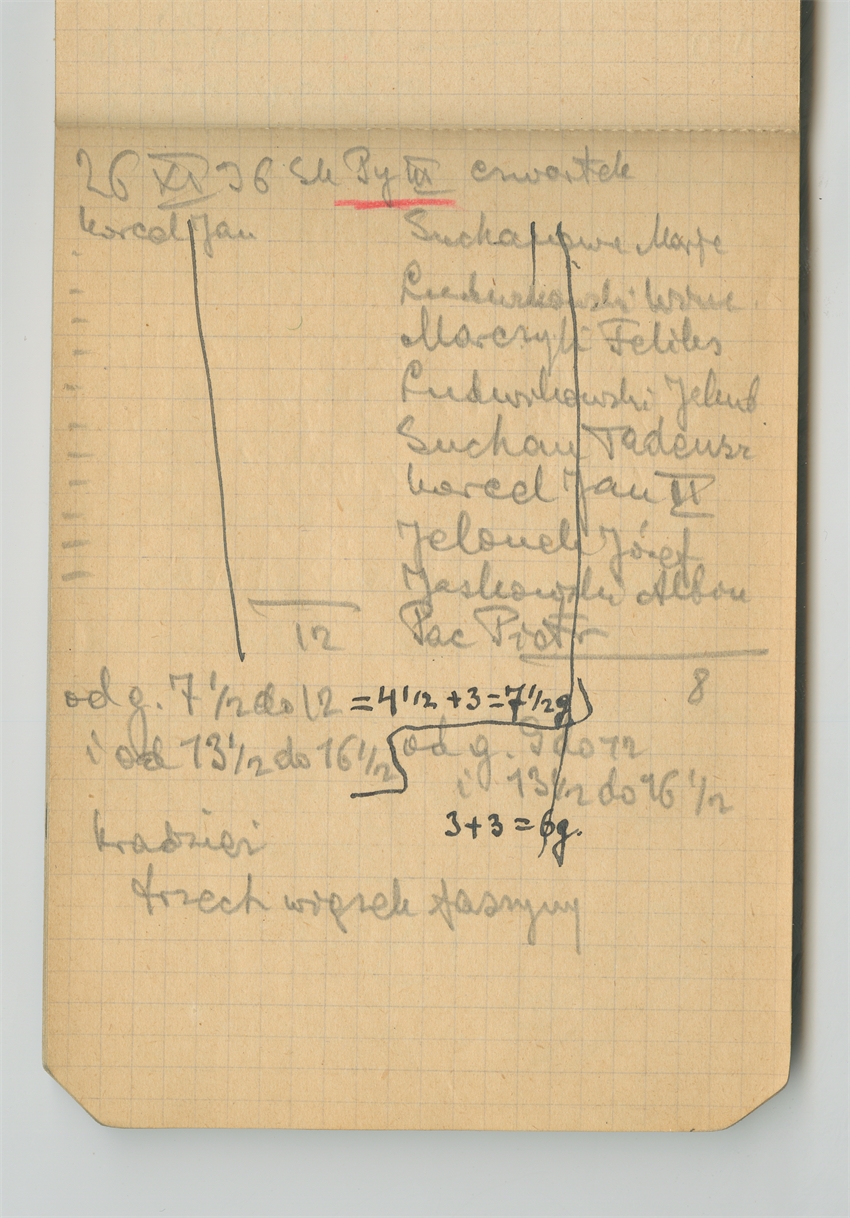 26 XI 36 Sk Py III czwartek
Korcel Jan
Suchanowa Marja
Ludwikowski
Marczyk Feliks
Ludwikowski Jakub
Suchan Tadeusz
Korcel Jan II
Jelonek Józef
Jaskowski Albin
Pac Piotr
12
8
od g. 7 1/2 do 12 = 4 1/2 + 3 = 7 1/2 g
i od 13 1/2 do 16 1/2
od g. 9 do 12
i 13 1/2 do 16 1/2
3 + 3 = 6 g.
kradzież
trzech wiązek faszyny